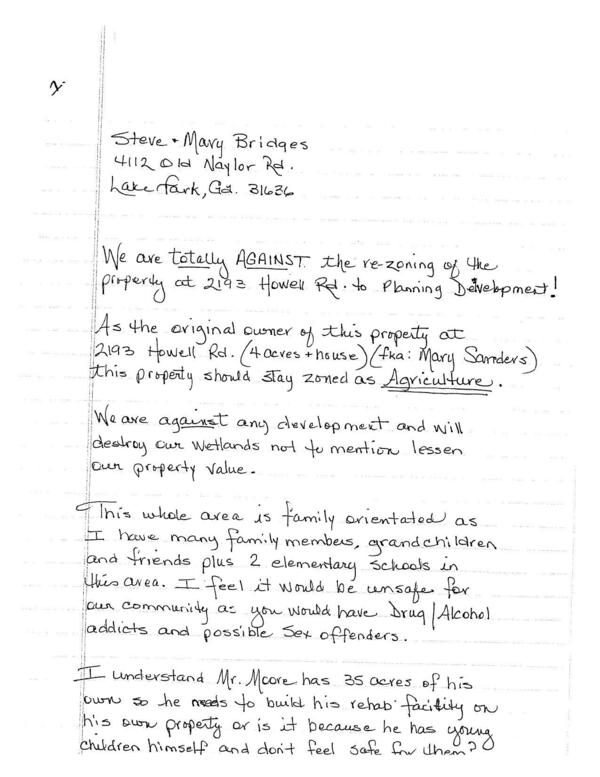 2
Steve + Mary Bridges
4112 Old Naylor Rd.
Lake Park, Ga. 31636
We are totally AGAINST the re-zoning of the
property at 2193 Howell Rd. to Planning Development!
As the original owner of this property at
2193 Howell Rd. (4 acres + house) (fka: Mary Sanders)
this property should stay zoned as Agriculture.
We are against any development and will
destroy our wetlands not to mention lessen
our property value.
This whole area is family orientated as
I have many family members, grandchildren
and friends plus 2 elementary schools in
this area. I feel it would be unsafe for
our community as you would have Drug/Alcohol
addicts and possible Sex offenders.
I understand Mr. Moore has 35 acres of his
own so he needs to build his rehab facility on
his own property or is it because he has young
children himself and don't feel safe for them?